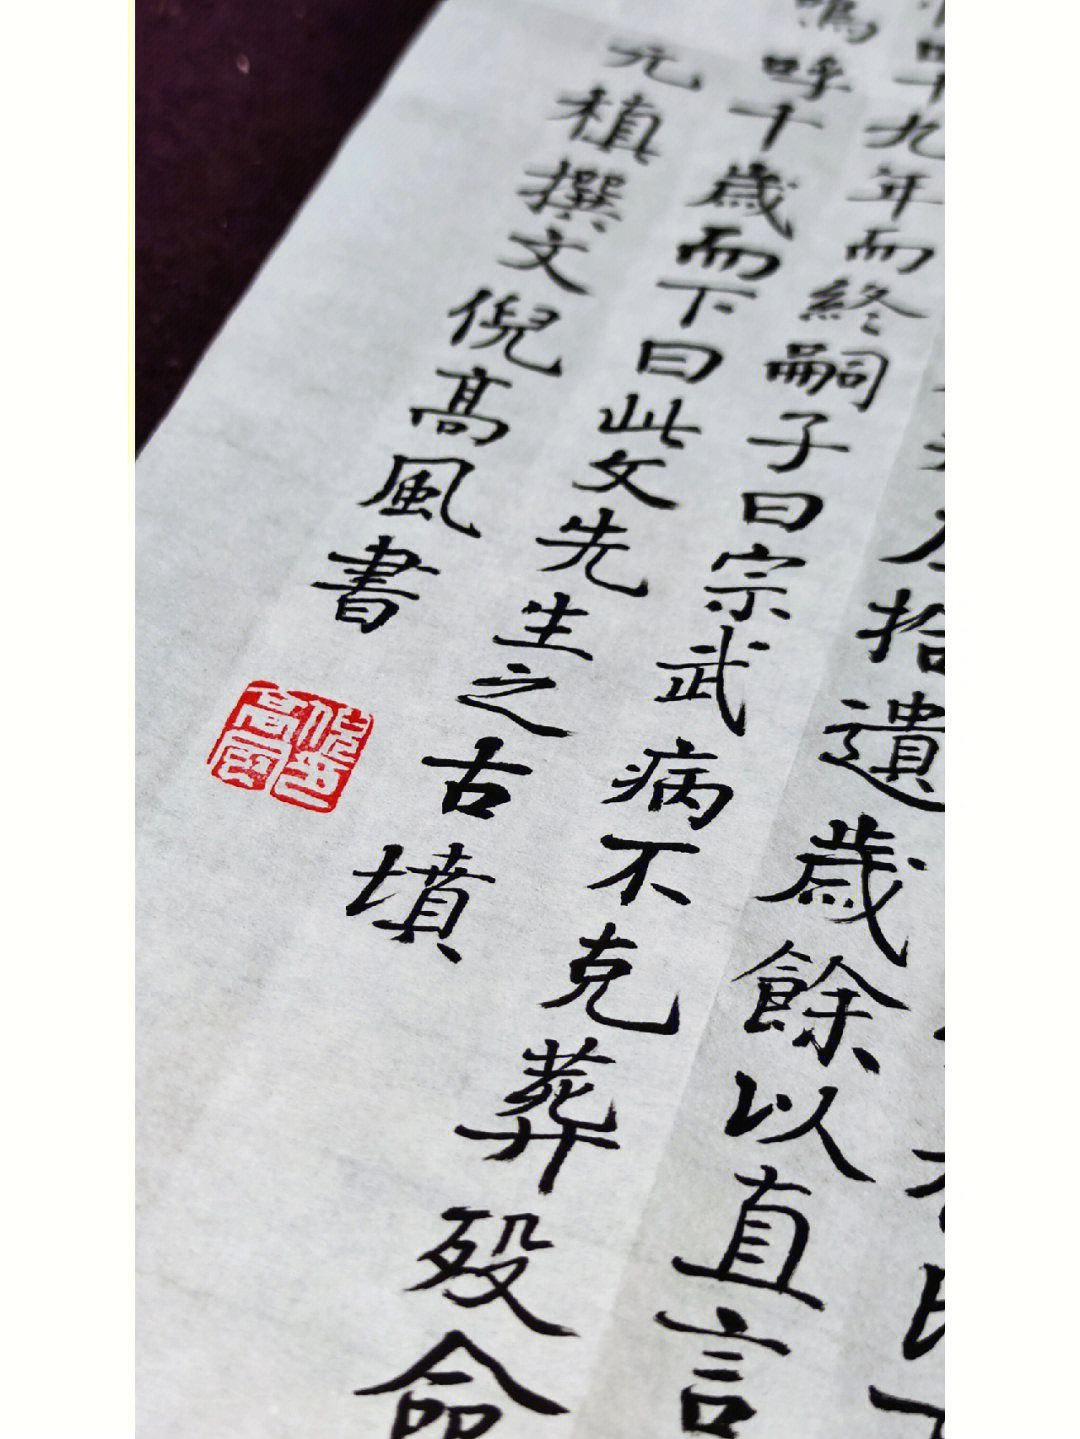 拾遺歲餘以直言
十九年而終嗣子曰宗武病不克葬殁命
嗚呼千歲而下曰此文先生之古墳
元稹撰文倪髙風書